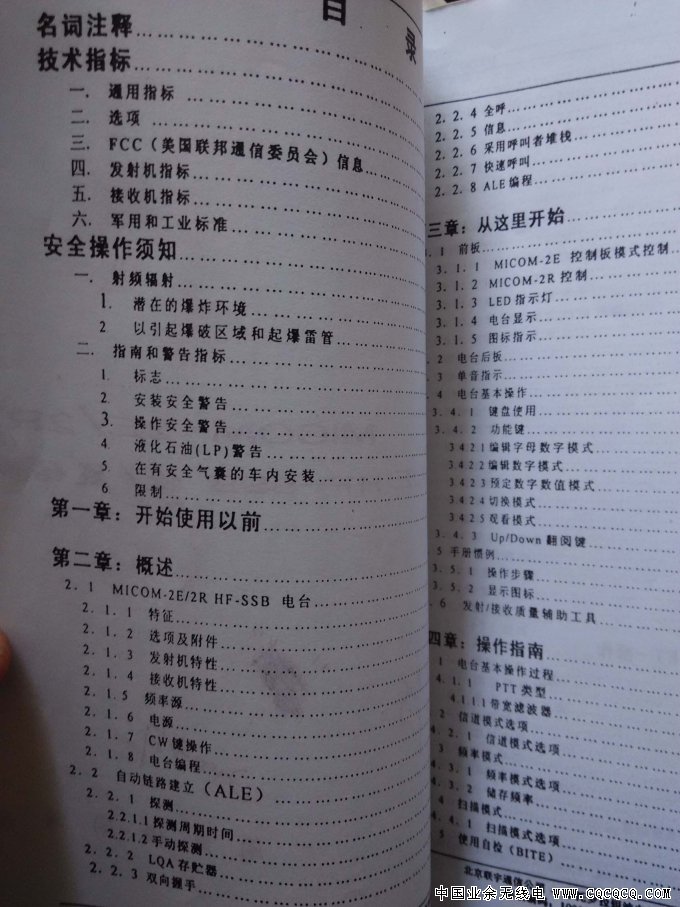 目 录
名词注释
技术指标
一. 通用指标
二. 选项
三. FCC(美国联邦通信委员会)信息
四. 发射机指标
五. 接收机指标
六. 军用和工业标准
安全操作须知
一. 射频辐射
1. 潜在的爆炸环境
2 以引起爆破区域和起爆雷管
二. 指南和警告指标
1. 标志
2. 安装安全警告
3. 操作安全警告
4. 液化石油(LP)警告
5. 在有安全气囊的车内安装
6. 限制
第一章: 开始使用以前
第二章: 概述
2. 1 MICOM-2E/2R HF-SSB 电台
2. 1. 1 特征
2. 1. 2 选项及附件
2. 1. 3 发射机特性
2. 1. 4 接收机特性
2. 1. 5 频率源
2. 1. 6 电源
2. 1. 7 CW键操作
2. 1. 8 电台编程
2. 2 自动链路建立(ALE)
2. 2. 1 探测
2.2.1.1探测周期时间
2.2.1.2手动探测
2. 2. 2 LQA存贮器
2. 2. 3 双向握手
2. 2. 4 全呼
2. 2. 5 信息
2. 2. 6 采用呼叫者堆栈
2. 2. 7 快速呼叫
2. 2. 8 ALE 编程
三章: 从这里开始
. 1 前板
3. 1. 1 MICOM-2E 控制板模式控制
3. 1. 2 MICOM-2R 控制
3. 1. 3 LED指示灯
3. 1. 4 电台显示
3. 1. 5 图标指示
. 2 电台后板
. 3 单音指示
. 4 电台基本操作
3. 4. 1 键盘使用
3. 4. 2 功能键
3 4 2 1编辑字母数字模式
3 4 2 2编辑数字模式
3 4 2 3预定数字数值模式
3 4 2 4切换模式
3 4 2 5观看模式
3. 4. 3 Up/Down 翻阅键
5 手册惯例
3. 5. 1 操作步骤
3. 5. 2 显示图标
. 6 发射/接收质量辅助工具
四章: 操作指南
1 电台基本操作过程
4. 1. 1 PTT 类型
4.1.1.1带宽滤波器
2 信道模式选项
4. 2. 1 信道模式选项
3 频率模式
4. 3. 1 频率模式选项
4. 3. 2 储存频率
4 扫描模式
4. 4. 1 扫描模式选项
5 使用自检(BITE)
北京联宇通信公
中国业余无线电 www.CQCQCQ.com